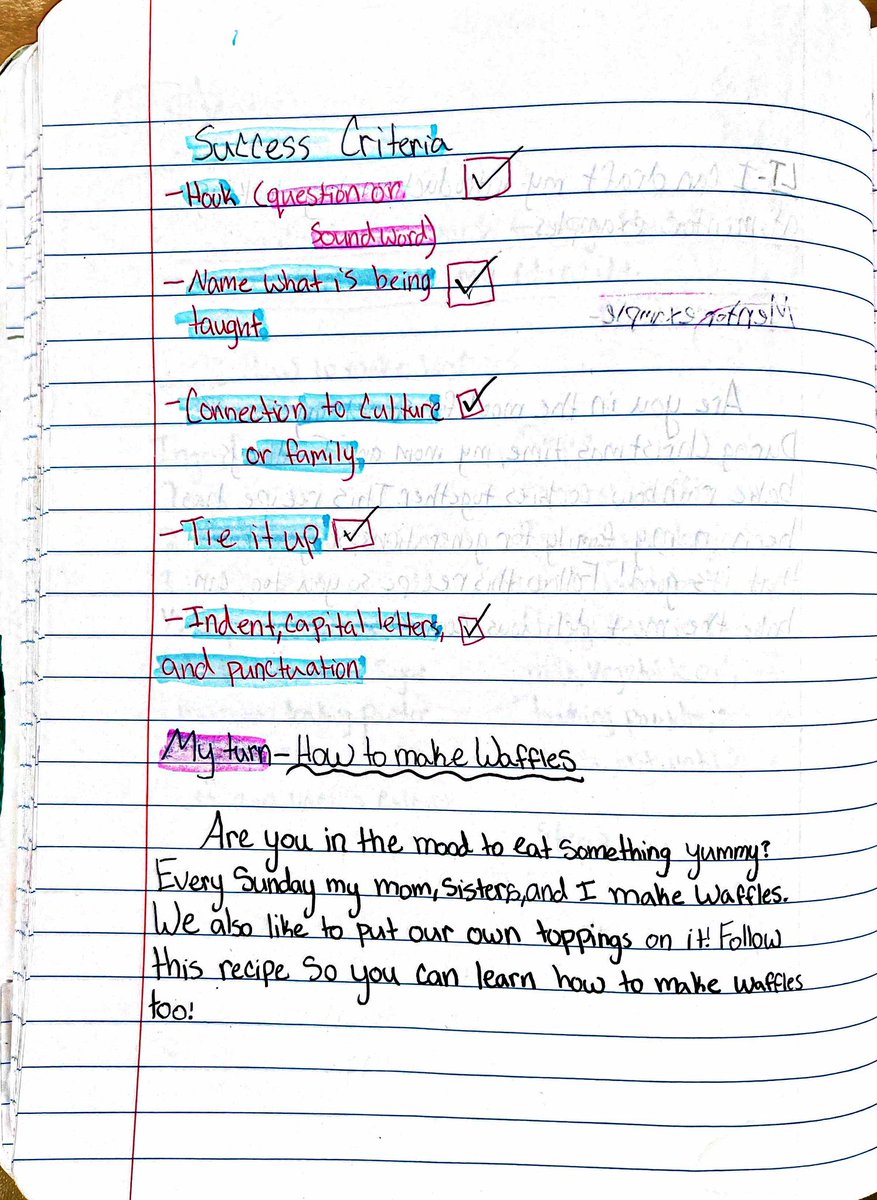 Success Criteria
- Hook (question or
sound word)
- Name what is being
taught
- Connection to culture
or family
- Tie it up
- Indent, capital letters,
and punctuation
My turn - How to make Waffles
Are you in the mood to eat something yummy?
Every Sunday my mom, sisters, and I make Waffles.
We also like to put our own toppings on it! Follow
this recipe so you can learn how to make waffles
too!